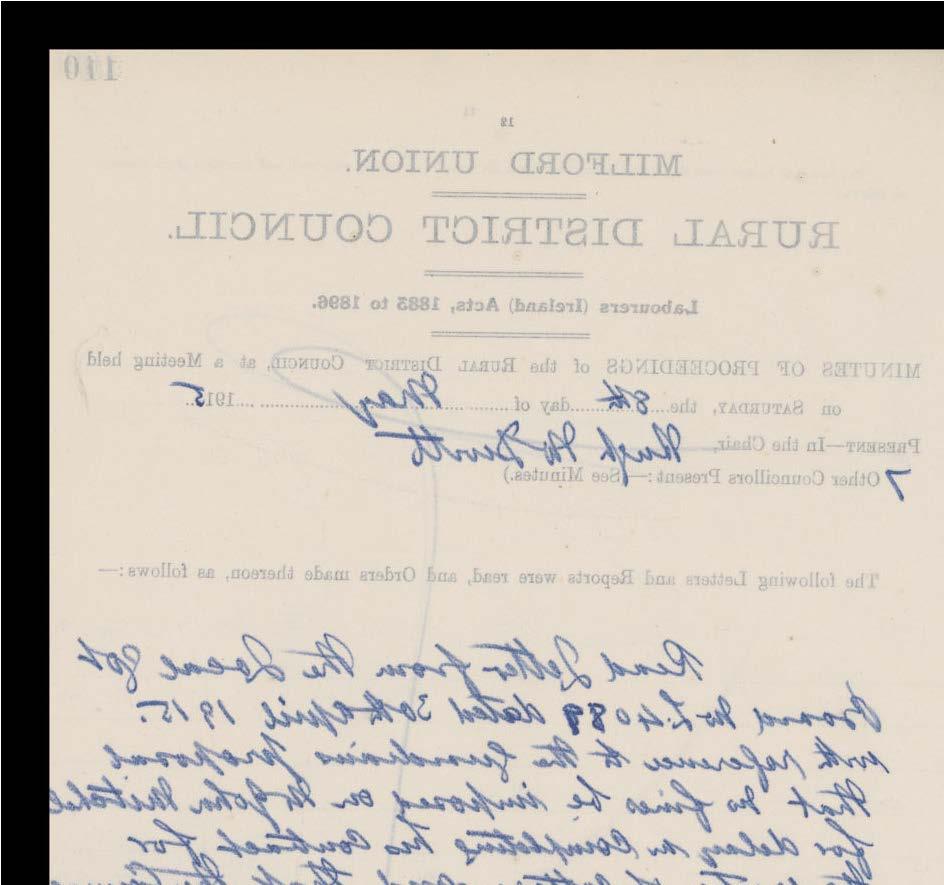 110
12
MILFORD UNION.
RURAL DISTRICT COUNCIL.
Labourers (Ireland) Acts, 1883 to 1896.
MINUTES OF PROCEEDINGS of the RURAL DISTRICT COUNCIL, at a Meeting held
on SATURDAY, the 8th day of May 1915.
PRESENT—In the Chair, Hugh McDevitt
7 Other Councillors Present:—(See Minutes.)
The following Letters and Reports were read, and Orders made thereon, as follows:—
Read Letter from the Local Govt
Board No L.4089 dated 30th April 1915.
with reference to the Guardians proposal
that no fines be imposed on Mr John Mitchel
for delay in Completing his Contract for